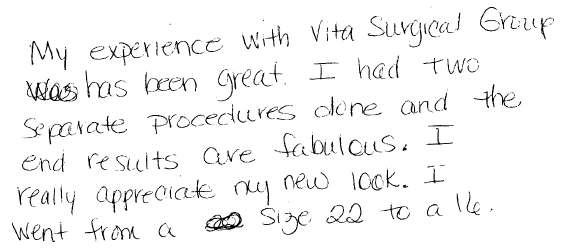 My experience with Vita Surgical Group
has been great. I had two
separate procedures done and the
end results are fabulous. I
really appreciate my new look. I
went from a size 22 to a 16.